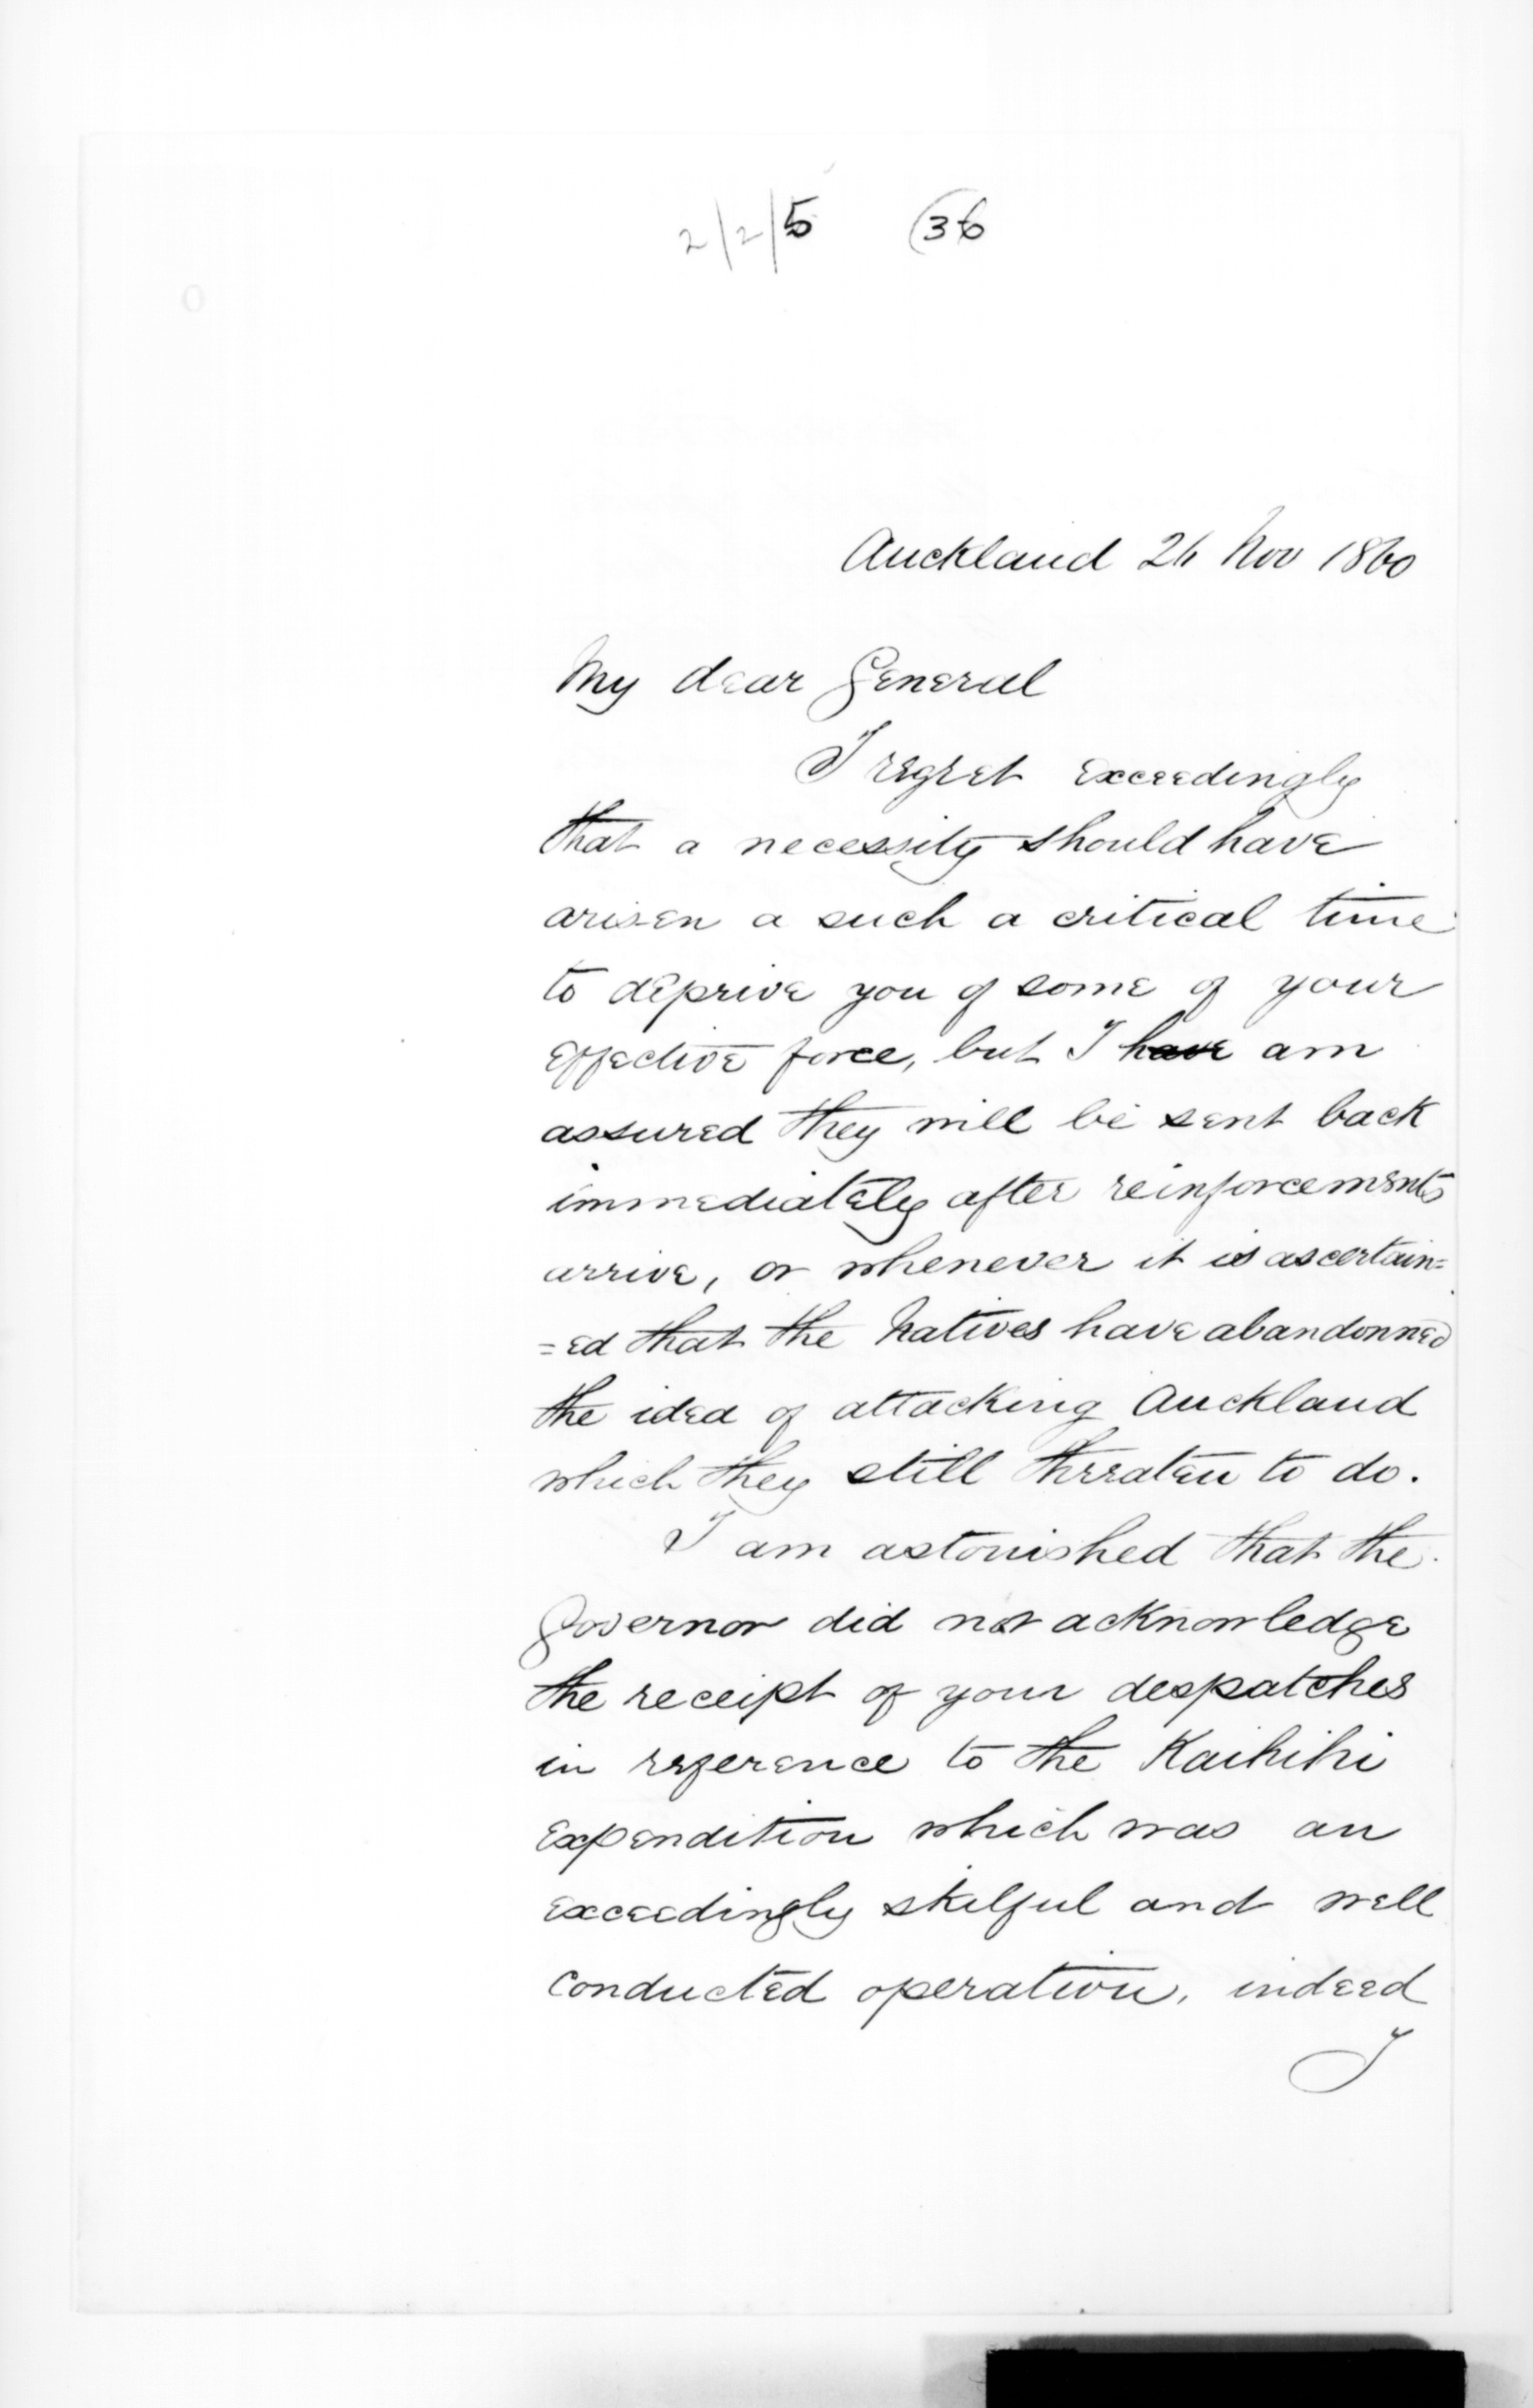 2/2/5 (36
Auckland 26 Nov 1860
My dear General
I regret exceedingly
that a necessity should have
arisen a such a critical time
to deprive you of some of your
effective force, but I have am
assured they will be sent back
immediately after reinforcements
arrive, or whenever it is ascertain=
=ed that the Natives have abandonned
the idea of attacking Auckland
which they still threaten to do.
I am astonished that the
Governor did not acknowledge
the receipt of your despatches
in reference to the Kaihihi
expendition which was an
exceedingly skilful and well
conducted operation, indeed
I